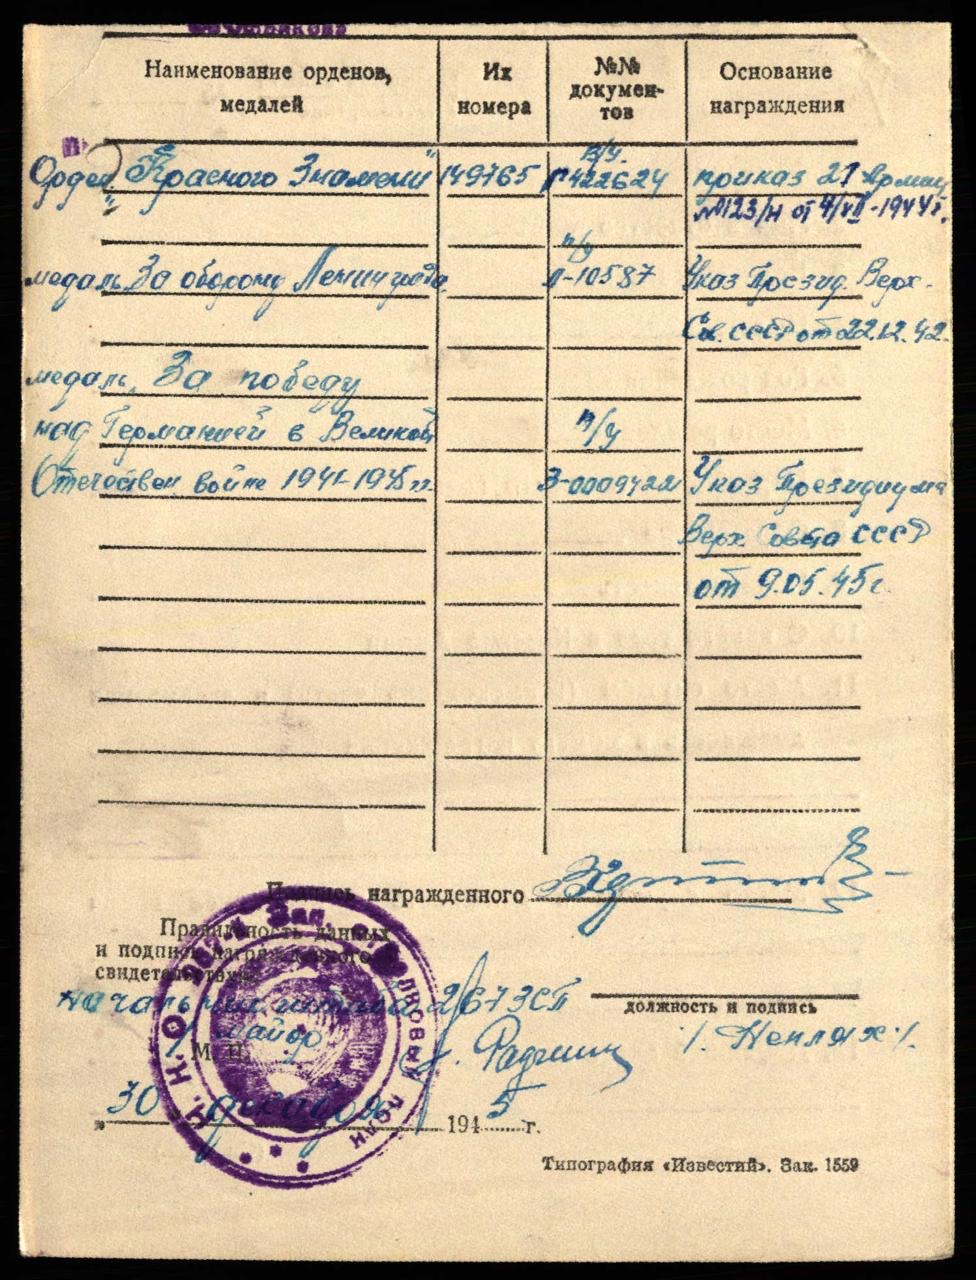 Наименование орденов,
медалей
Их
номера
№№
докумен-
тов
Основание
награждения
Орден „Красного Знамени" 149765 Г 422624 приказ 21 Армии
в/у.
№123/н от 4/VII-1944г.
п/у
медаль За оборону Ленинграда Л-10587 Указ Презид. Верх.
Сов. СССР от 22.12.42.
медаль, За победу
над Германией в Великой п/у
Отечествен войне 1941-1945 гг. Указ Президиума
Верх. Совета СССР
от 9.05.45г.
Подпись награжденного
Правильность данных
и подпись награжденного
свидетельствую:
начальник штаба 2673СП
должность и подпись
майор
М. П.
30 декабря 1945 г.
Типография «Известий». Зак. 1559